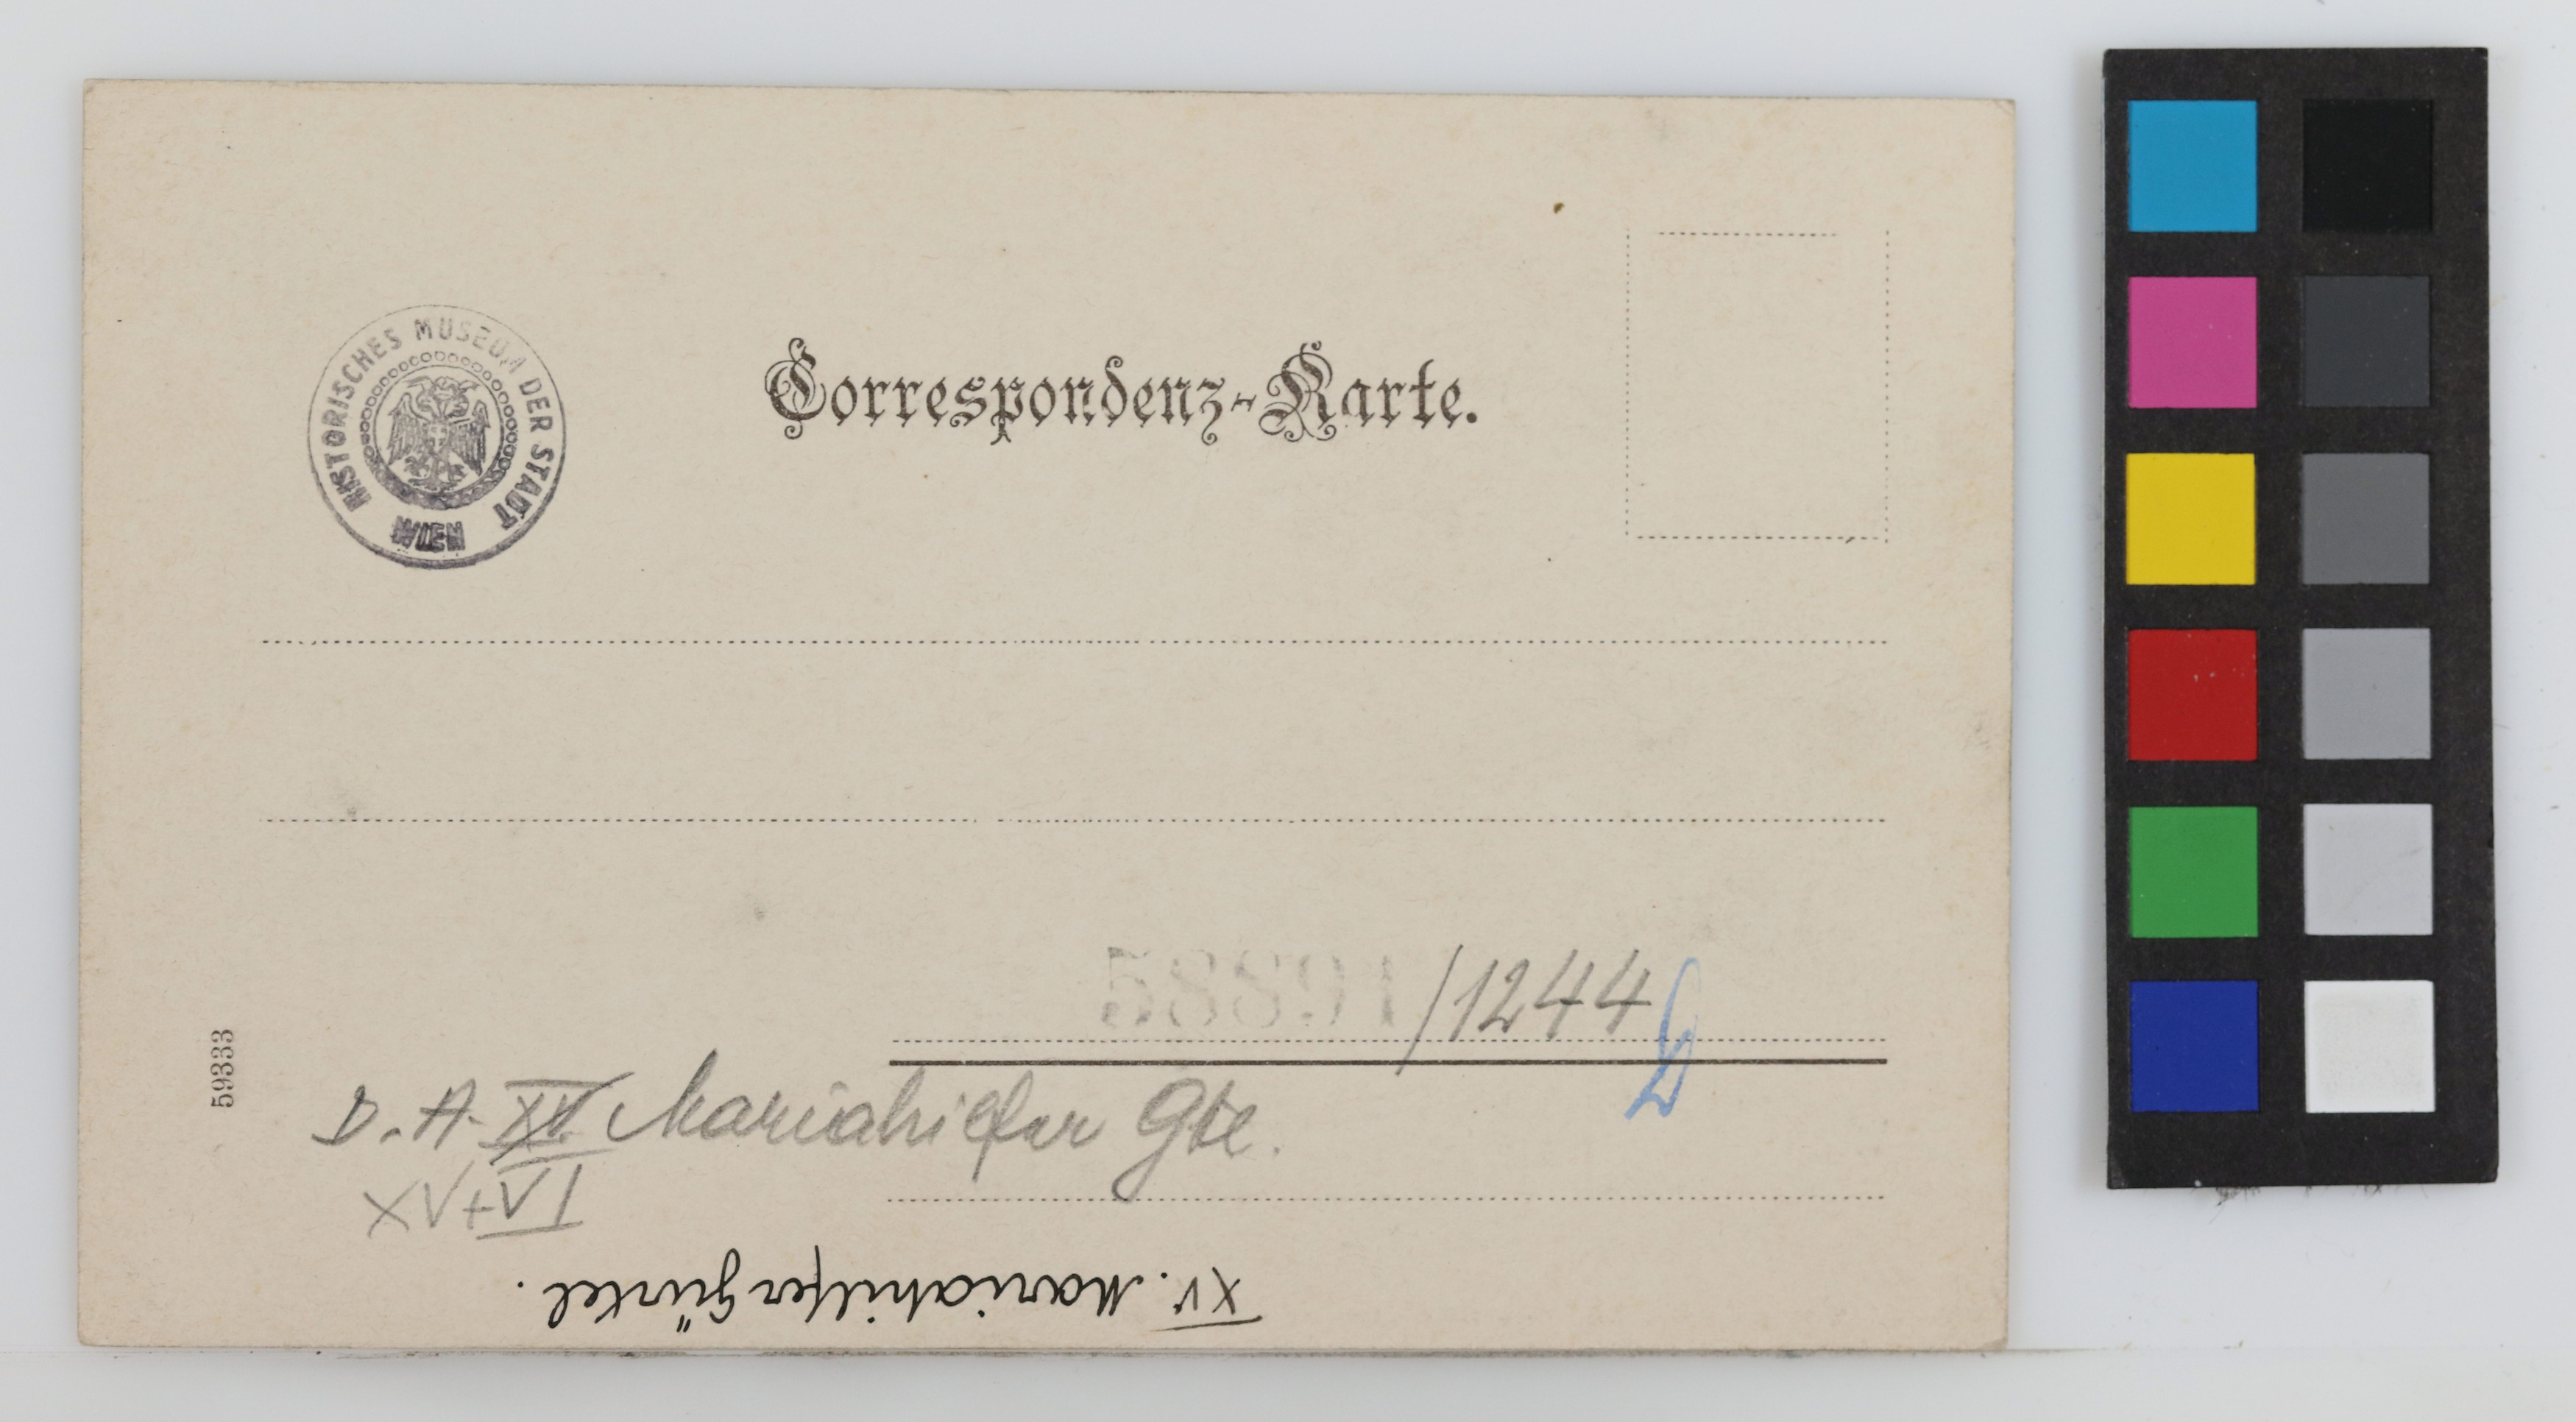 HISTORISCHES MUSEUM DER STADT WIEN
Correspondenz-Karte.
58891/1244
59333
D. A. XV. Mariahilfer Gtl.
XV+VI
XV. Mariahilfer Gürtel.